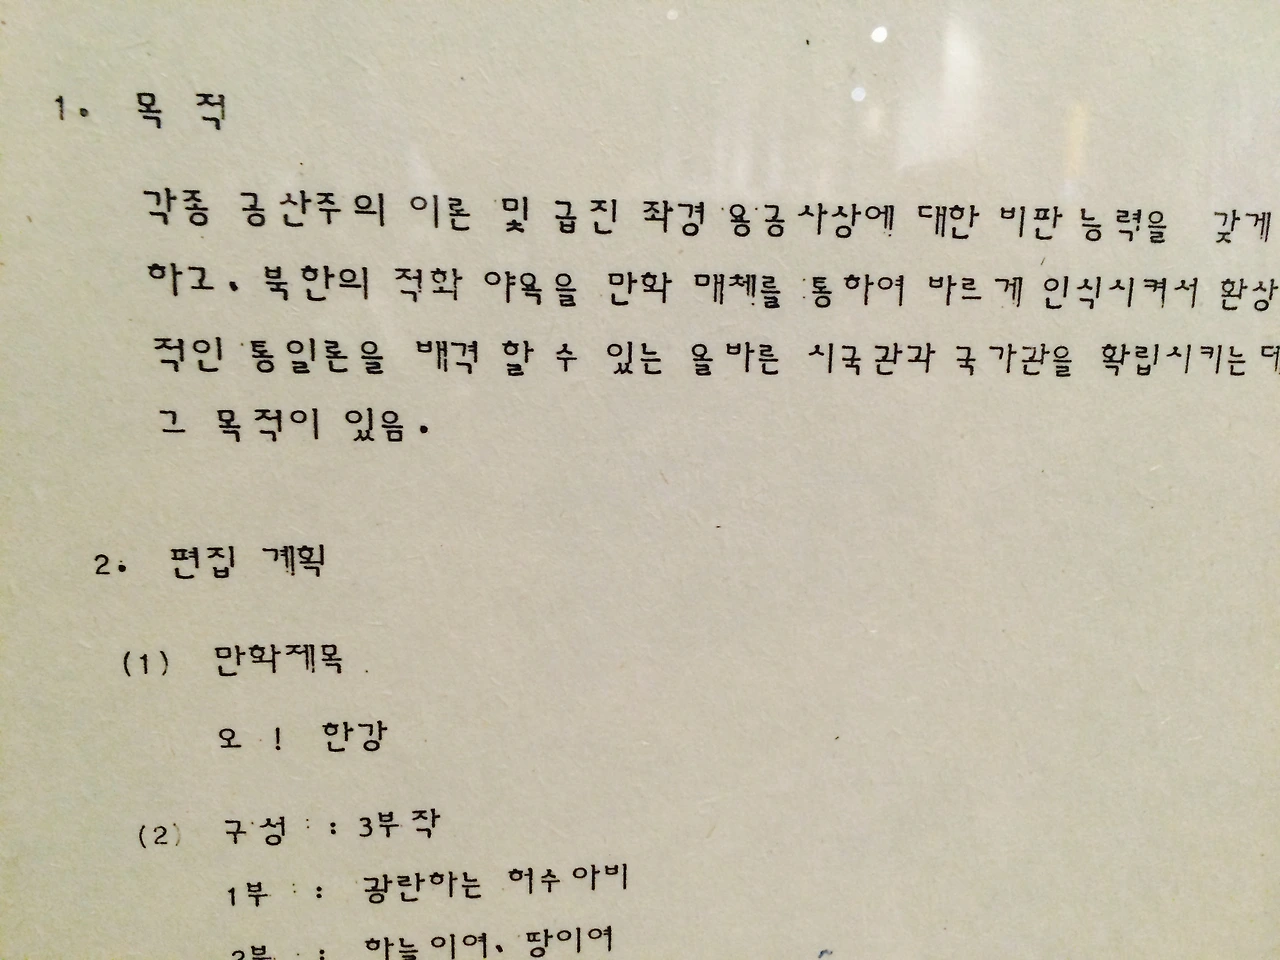 1. 목 적
각종 공산주의 이론 및 급진 좌경 용공사상에 대한 비판 능력을 갖게
하고, 북한의 적화 야욕을 만화 매체를 통하여 바르게 인식시켜서 환상
적인 통일론을 배격 할 수 있는 올바른 시국관과 국가관을 확립시키는데
그 목적이 있음.
2. 편집 계획
(1) 만화제목
오 ! 한강
(2) 구성 : 3부작
1부 : 광란하는 허수아비
2부 : 하늘이여, 땅이여